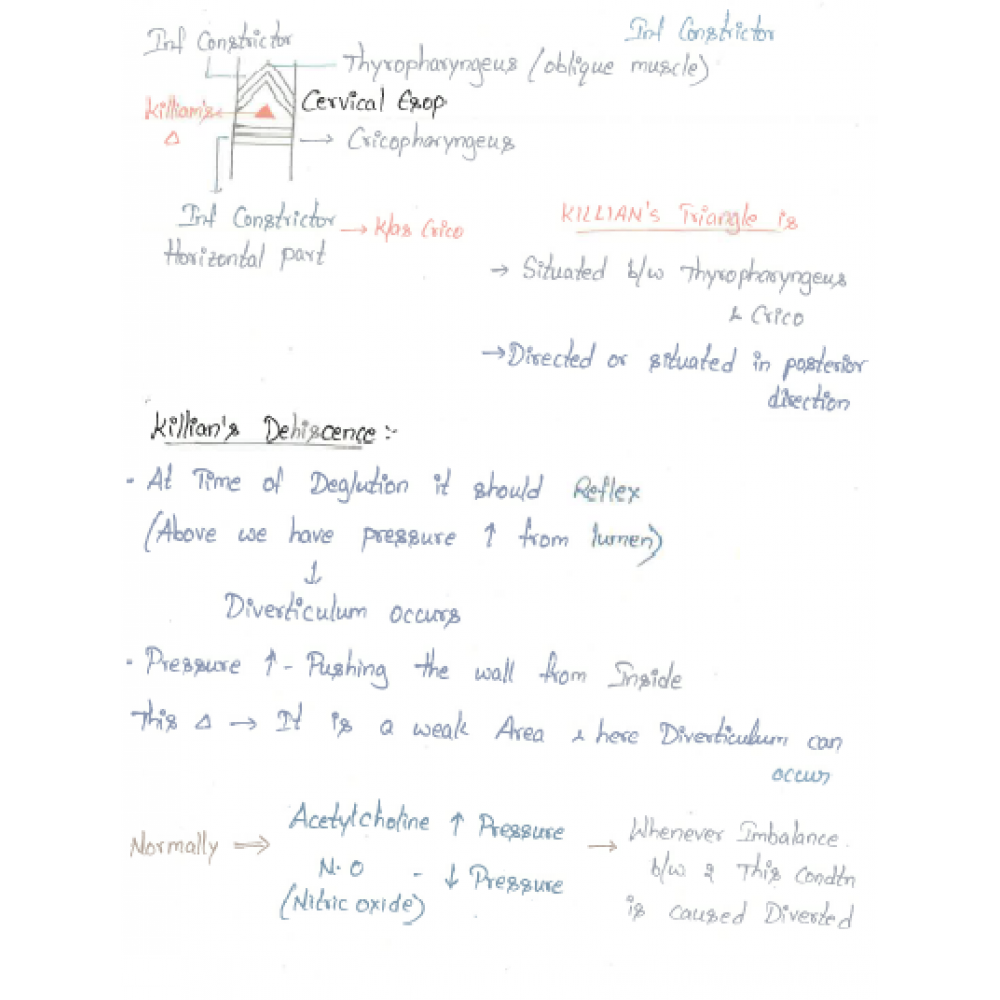 Inf Constrictor
Inf Constrictor
Thyropharyngeus (oblique muscle)
Killian's
Δ
Cervical Esop
→ Cricopharyngeus
Inf Constrictor → K/as Crico
Horizontal part
KILLIAN's Triangle is
→ Situated b/w Thyropharyngeus
& Crico
→ Directed or situated in posterior
direction
Killian's Dehiscence :-
• At Time of Deglution it should Reflex
(Above we have pressure ↑ from lumen)
↓
Diverticulum occurs
• Pressure ↑ - Pushing the wall from Inside
This Δ → It is a weak Area & here Diverticulum can
occur
Normally ⇒ Acetylcholine ↑ Pressure → Whenever Imbalance
N.O - ↓ Pressure b/w 2 This Condtn
(Nitric oxide) is caused Diverted